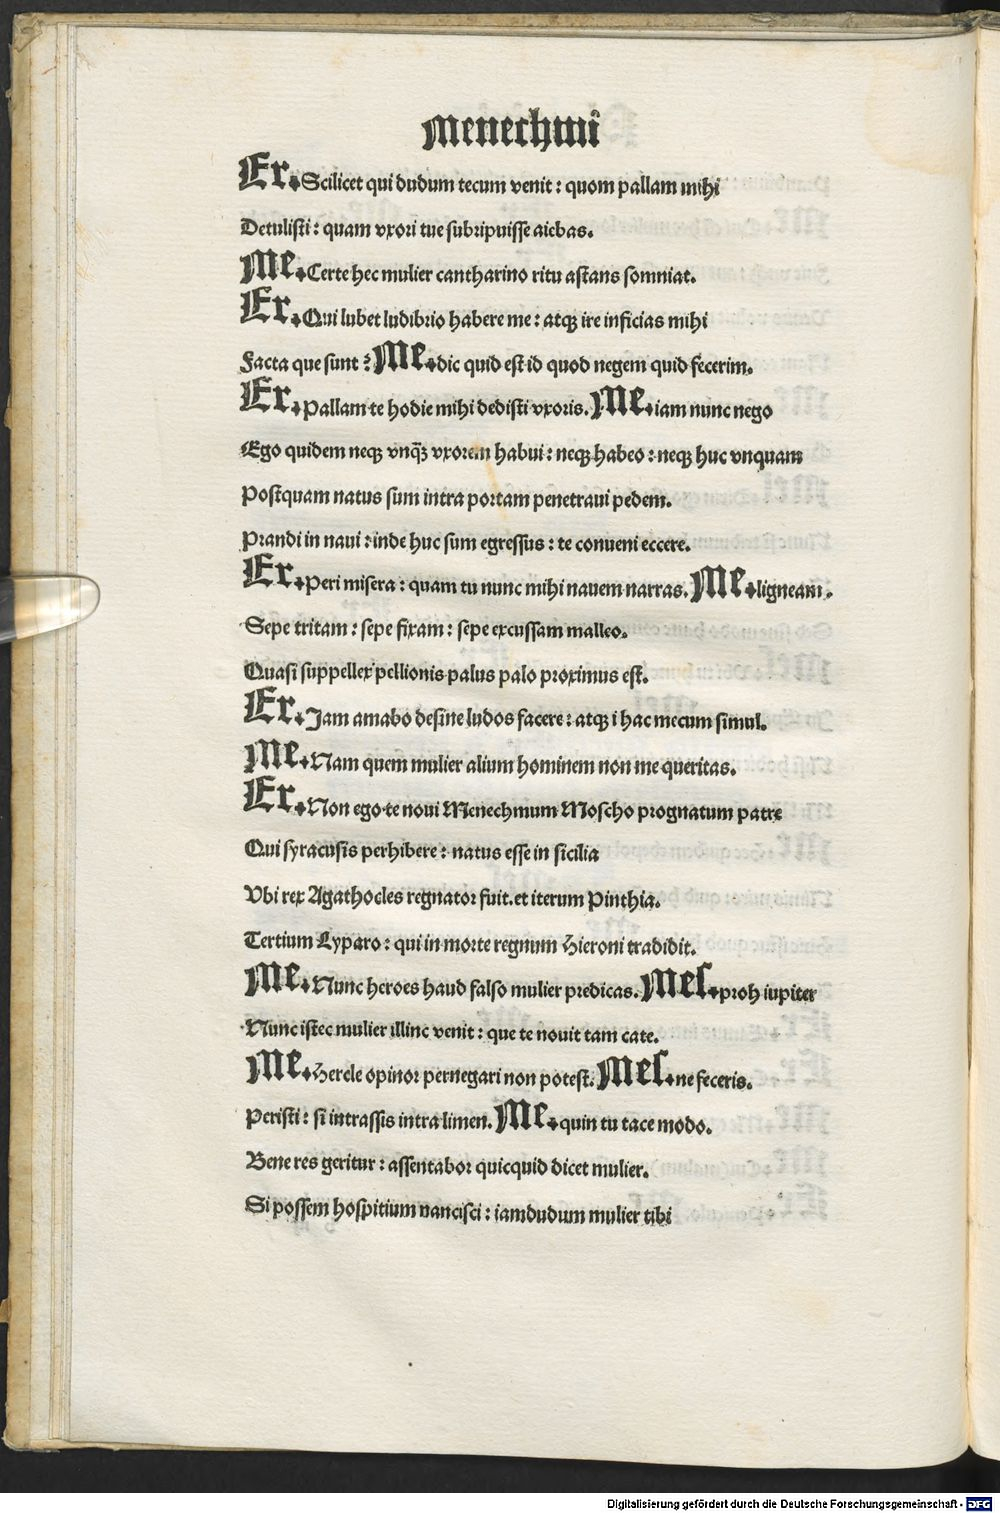 Menechmi
Er. Scilicet qui dudum tecum venit: quom pallam mihi
Detulisti: quam vxori tue subripuisse aiebas.
Me. Certe hec mulier cantharino ritu astans somniat.
Er. Qui lubet ludibrio habere me: atqȝ ire inficias mihi
Facta que sunt? Me. dic quid est id quod negem quid fecerim.
Er. Pallam te hodie mihi dedisti vxoris. Me. iam nunc nego
Ego quidem neqȝ vnq̃ȝ vxorem habui: neqȝ habeo: neqȝ huc vnquam
Postquam natus sum intra portam penetraui pedem.
Prandi in naui: inde huc sum egressus: te conueni eccere.
Er. Peri misera: quam tu nunc mihi nauem narras. Me. ligneam.
Sepe tritam: sepe fixam: sepe excussam malleo.
Quasi suppellex pellionis palus palo proximus est.
Er. Jam amabo desine ludos facere: atqȝ i hac mecum simul.
Me. Nam quem mulier alium hominem non me queritas.
Er. Non ego te noui Menechmum Moscho prognatum patre
Qui syracusis perhibere: natus esse in sicilia
Vbi rex Agathocles regnator fuit. et iterum Pinthia.
Tertium Lyparo: qui in morte regnum Hieroni tradidit.
Me. Nunc heroes haud falso mulier predicas. Mes. proh iupiter
Nunc istec mulier illinc venit: que te nouit tam cate.
Me. Hercle opinor pernegari non potest. Mes. ne feceris.
Peristi: si intrassis intra limen. Me. quin tu tace modo.
Bene res geritur: assentabor quicquid dicet mulier.
Si possem hospitium nancisci: iamdudum mulier tibi
Digitalisierung gefördert durch die Deutsche Forschungsgemeinschaft - DFG